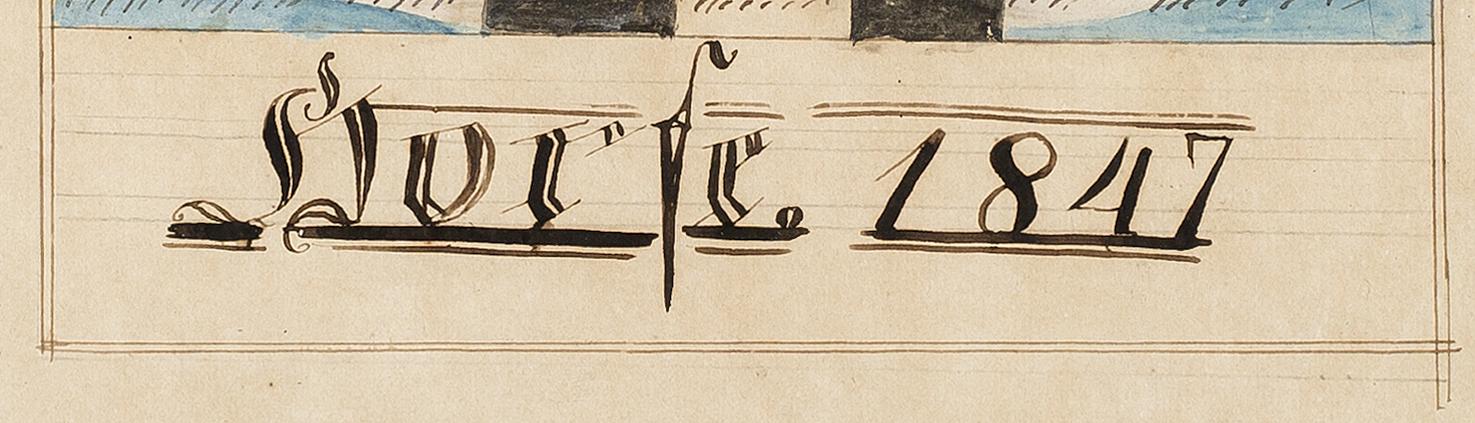 Horſe. 1847